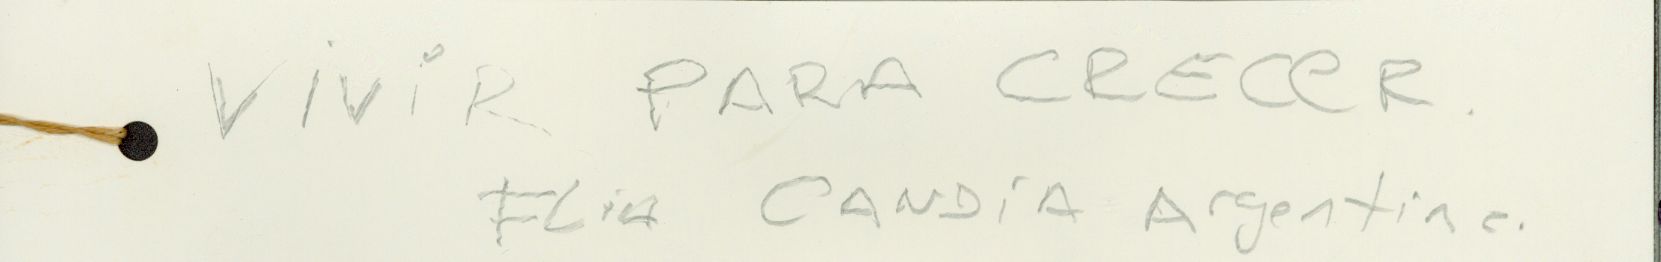 VIVIR PARA CRECER.
Flia CANDIA Argentina.